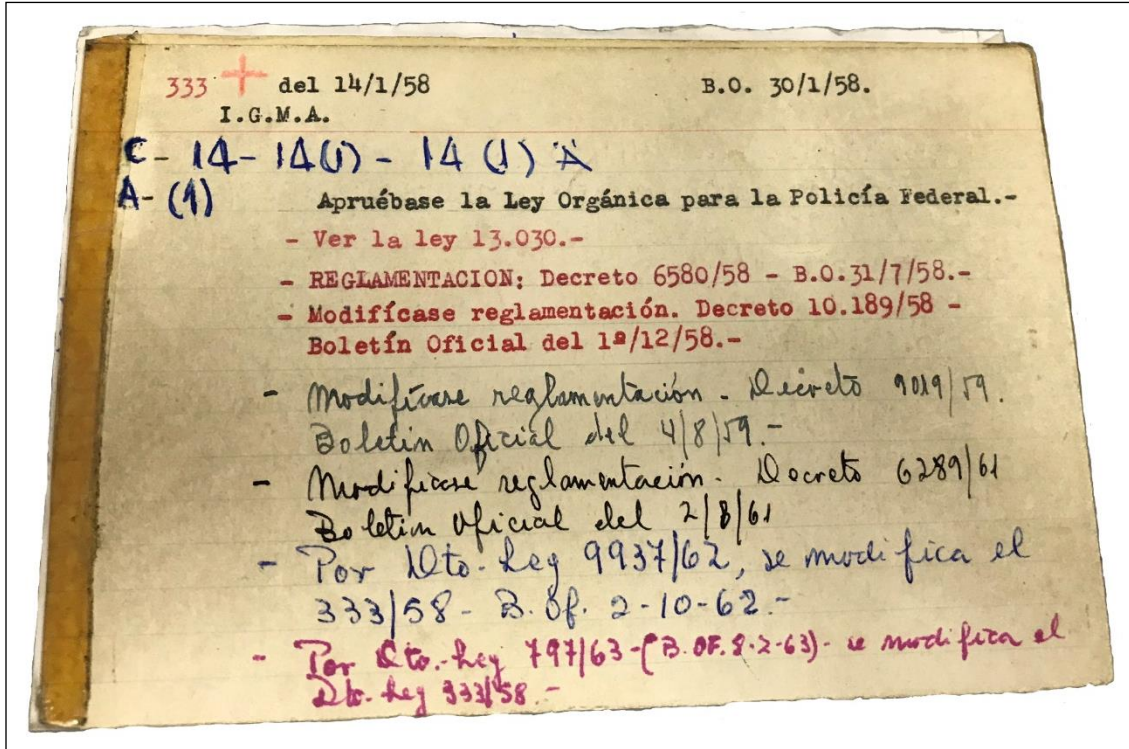 333 + del 14/1/58 B.O. 30/1/58.
I.G.M.A.
C- 14- 14(1) - 14 (1) A
A- (1)
Apruébase la Ley Orgánica para la Policía Federal.-
- Ver la ley 13.030.-
- REGLAMENTACION: Decreto 6580/58 - B.O.31/7/58.-
- Modifícase reglamentación. Decreto 10.189/58 -
Boletín Oficial del 1º/12/58.-
- Modifícase reglamentación - Decreto 9019/59.
Boletín Oficial del 4/8/59.-
- Modifícase reglamentación. Decreto 6289/61
Boletin Oficial del 2/8/61
- Por Dto-Ley 9937/62, se modifica el
333/58 - B. Of. 2-10-62.-
- Por Dto.-Ley 797/63-(B.OF. 8-2-63)- se modifica el
Dto. Ley 333/58.-